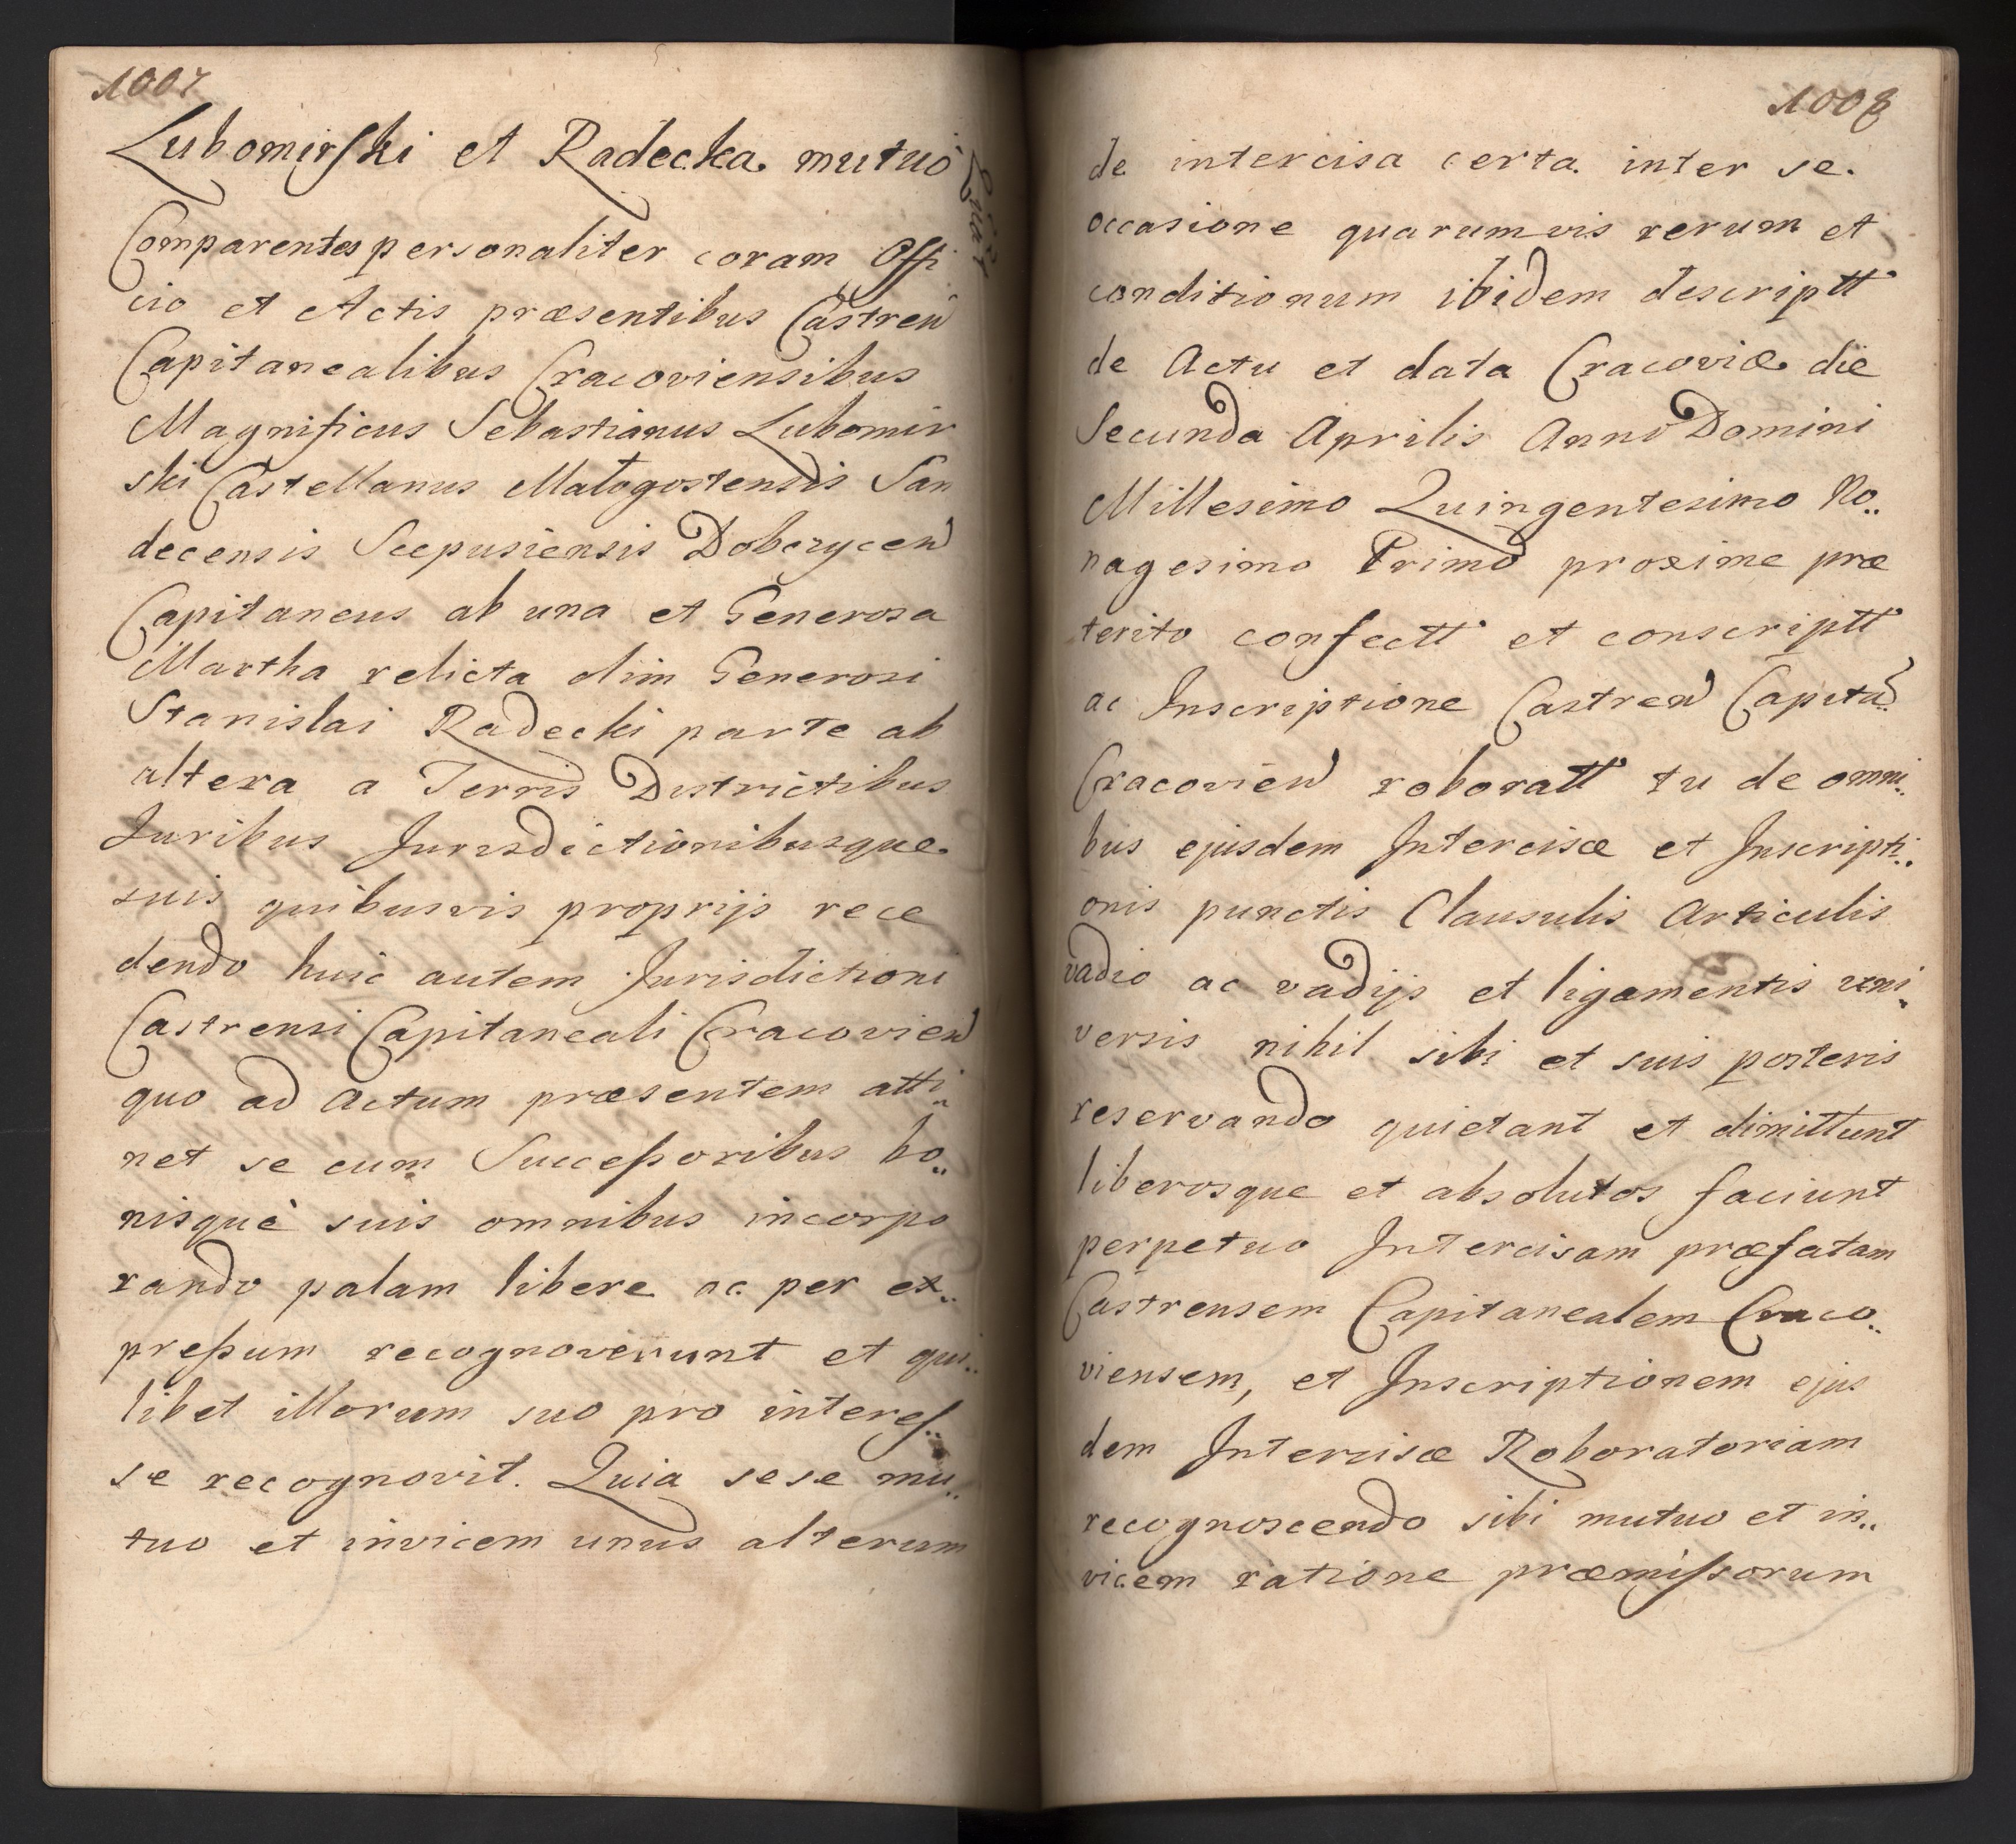 1007
Lubomirski et Radecka mutuo
Comparentes personaliter coram Offi
cio et Actis præsentibus Castren
Capitanealibus Cracoviensibus
Magnificus Sebastianus Lubomir
ski Castellanus Małogostensis San
decensis Scepusiensis Dobczycen
Capitaneus ab una et Generosa
Martha relicta olim Generosi
Stanislai Radecki parte ab
altera a Terris Districtibus
Juribus Jurisdictionibusque
suis quibusvis proprijs rece
dendo huic autem Jurisdictioni
Castrensi Capitaneali Cracovien
quo ad Actum præsentem atti„
net se cum Successoribus bo„
nisque suis omnibus incorpo
rando palam libere ac per ex„
pressum recognoverunt et qui„
libet illorum suo pro interes„
se recognovit. Quia sese mu„
tuo et invicem unus alterum
1008
de intercisa certa inter se
occasione quarumvis rerum et
conditionum ibidem descriptt
de Actu et data Cracoviæ die
Secunda Aprilis Anno Domini
Millesimo Quingentesimo No„
nagesimo Primo proxime præ
terito confectt et conscriptt
ac Inscriptione Castren Capitan
Cracovien roboratt tu de omni„
bus ejusdem Intercisæ et Inscripti„
onis punctis Clausulis Articulis
vadio ac vadijs et ligamentis uni„
versis nihil sibi et suis posteris
reservando quietant et dimittunt
liberosque et absolutos faciunt
perpetuo Intercisam præfatam
Castrensem Capitanealem Craco„
viensem, et Inscriptionem ejus
dem Intercisæ Roboratoriam
recognoscendo sibi mutuo et in„
vicem ratione præmissorum